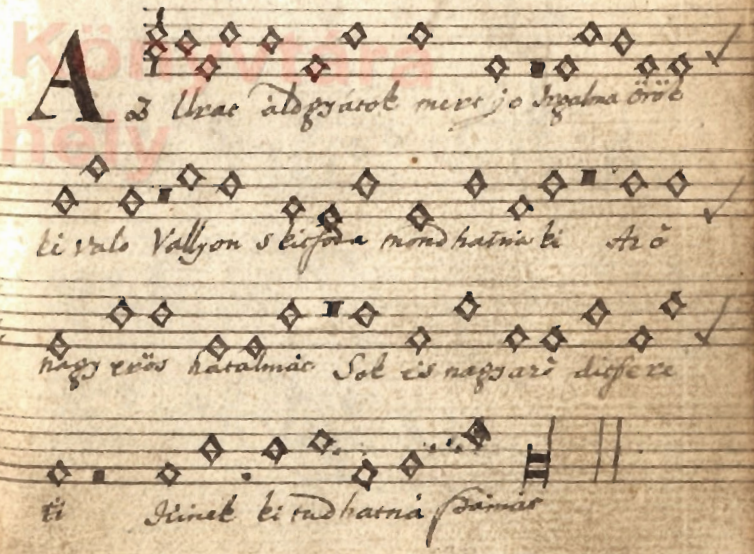 Könyvtára
hely
Az Urat áldgyátok mert jo Irgalma örök
ki valo Vallyon s kitsoda mondhatna ki Az ő
nagy erös hatalmát Sok és nagy az ő ditsere
ti Kinek ki tudhatná számát